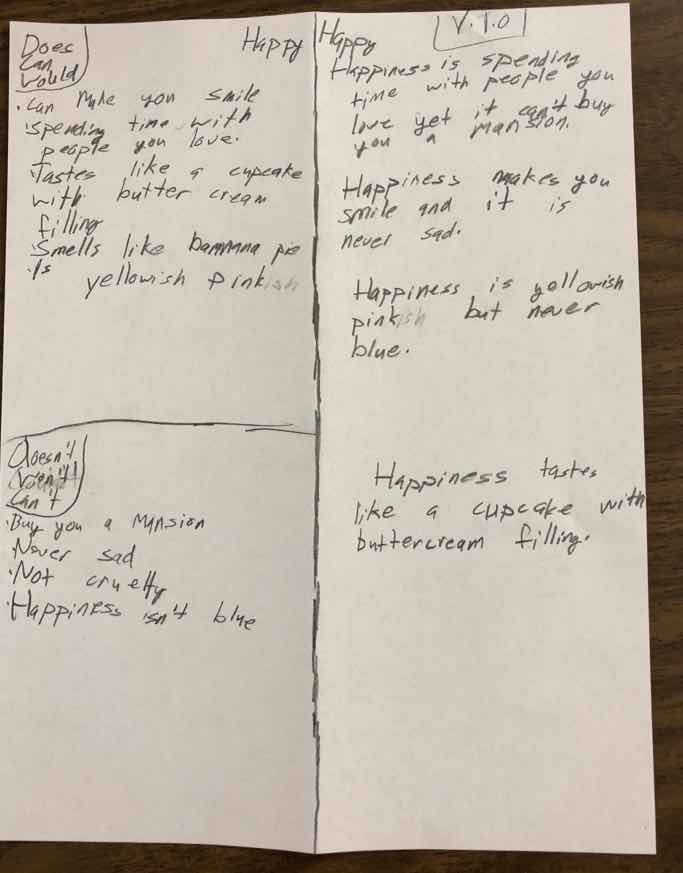 Does
Can
Would
Happy
· Can make you smile
· spending time with
people you love.
· Tastes like a cupcake
with butter cream
filling
· Smells like bannana pie
· Is
yellowish pinkish
Doesn't
Won't
Can't
· Buy you a Mansion
· Never sad
· Not cruelty
· Happiness isn't blue
V.1.0
Happy
Happiness is spending
time with people you
love yet it can't buy
you a mansion.
Happiness makes you
smile and it is
never sad.
Happiness is yellowish
pinkish but never
blue.
Happiness tastes
like a cupcake with
buttercream filling.